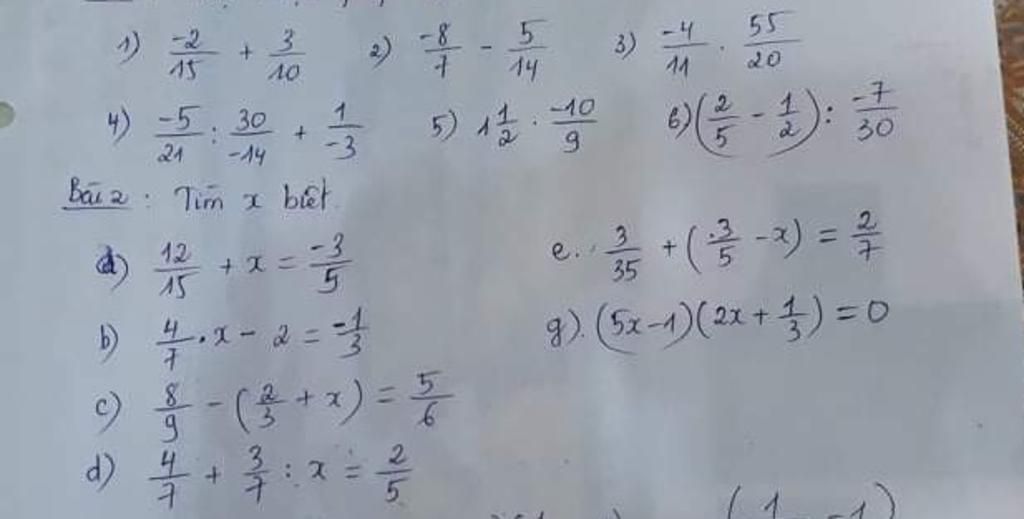 1) -2/15 + 3/10 2) -8/7 - 5/14 3) -4/11 . 55/20
4) -5/21 : 30/-14 + 1/-3 5) 1 1/2 . -10/9 6) (2/5 - 1/2) : -7/30
Bài 2 : Tìm x biết.
a) 12/15 + x = -3/5 e. 3/35 + (3/5 - x) = 2/7
b) 4/7 . x - 2 = -1/3 g). (5x-1)(2x + 1/3) = 0
c) 8/9 - (2/3 + x) = 5/6
d) 4/7 + 3/7 : x = 2/5